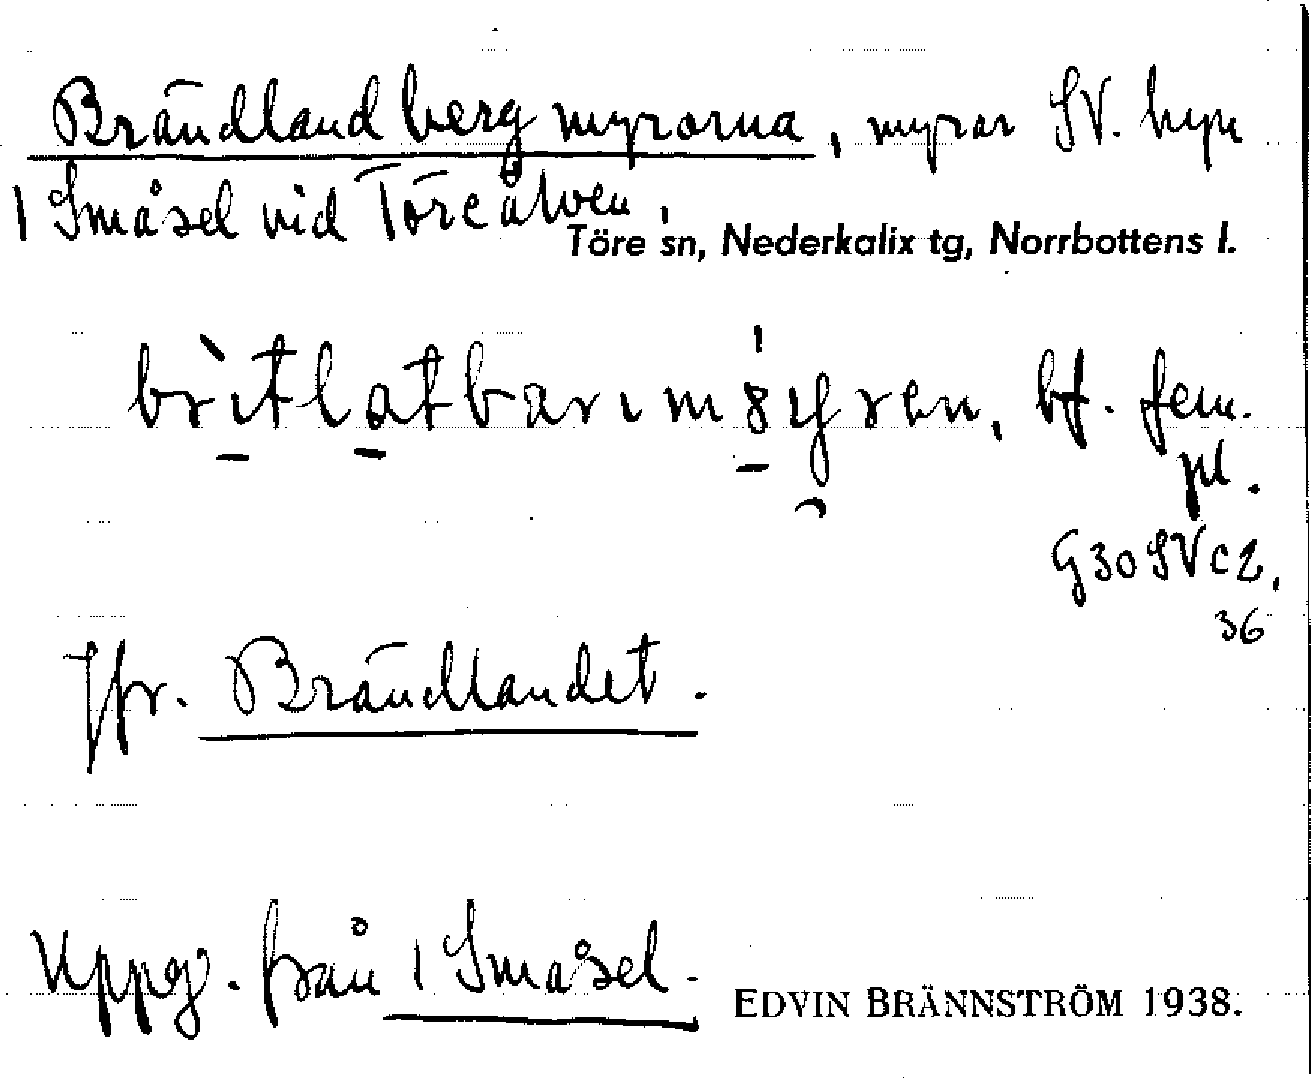 Brändlandbergmyrorna, myrar SV. hpn
1 Småsel vid Töreälven.
Töre sn, Nederkalix tg, Norrbottens l.
bf. fem.
pl.
G30SVc2.
36
Jfr. Brändlandet.
Uppg. från 1 Småsel.
EDVIN BRÄNNSTRÖM 1938.